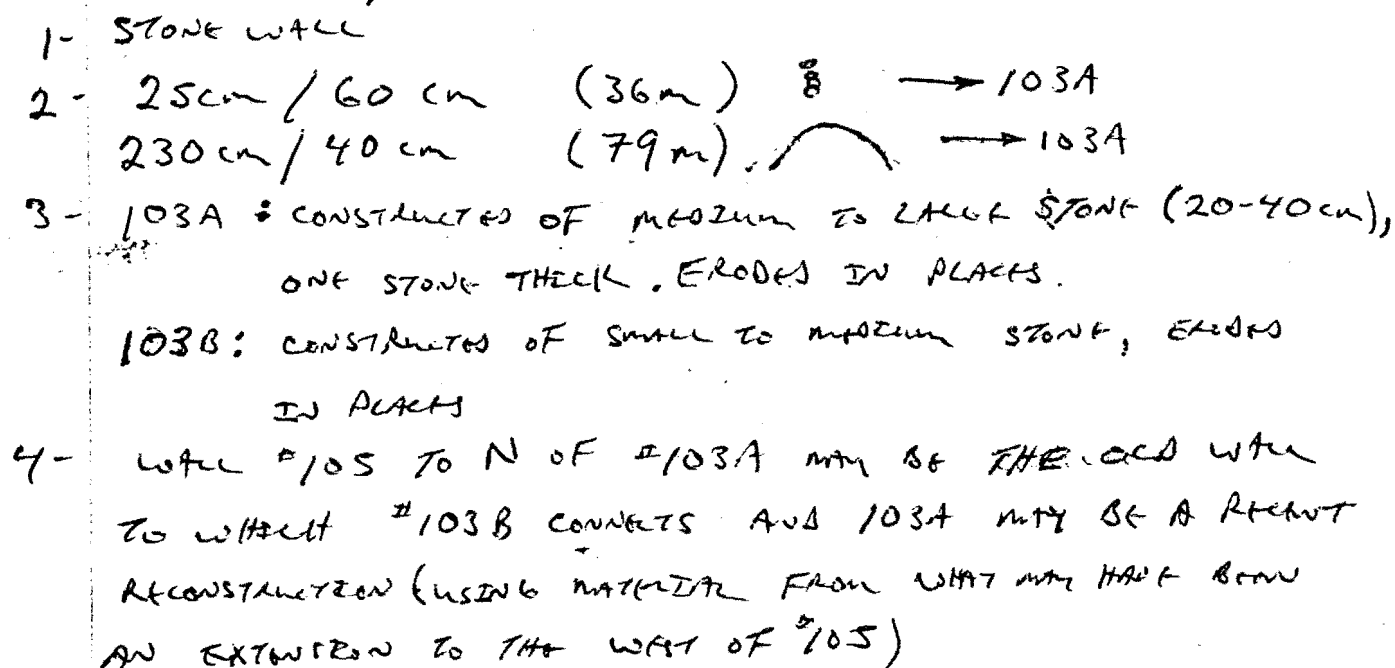 1- STONE WALL
2- 25cm / 60 cm (36m) → 103A
230 cm / 40 cm (79m). → 103A
3- 103A : CONSTRUCTED OF MEDIUM TO LARGE STONE (20-40cm),
ONE STONE THICK. ERODED IN PLACES.
103B: CONSTRUCTED OF SMALL TO MEDIUM STONE, ERODED
IN PLACES
4- WALL #105 TO N OF #103A MAY BE THE OLD WALL
TO WHICH #103B CONNECTS AND 103A MAY BE A RECENT
RECONSTRUCTION (USING MATERIAL FROM WHAT MAY HAVE BEEN
AN EXTENSION TO THE WEST OF #105)